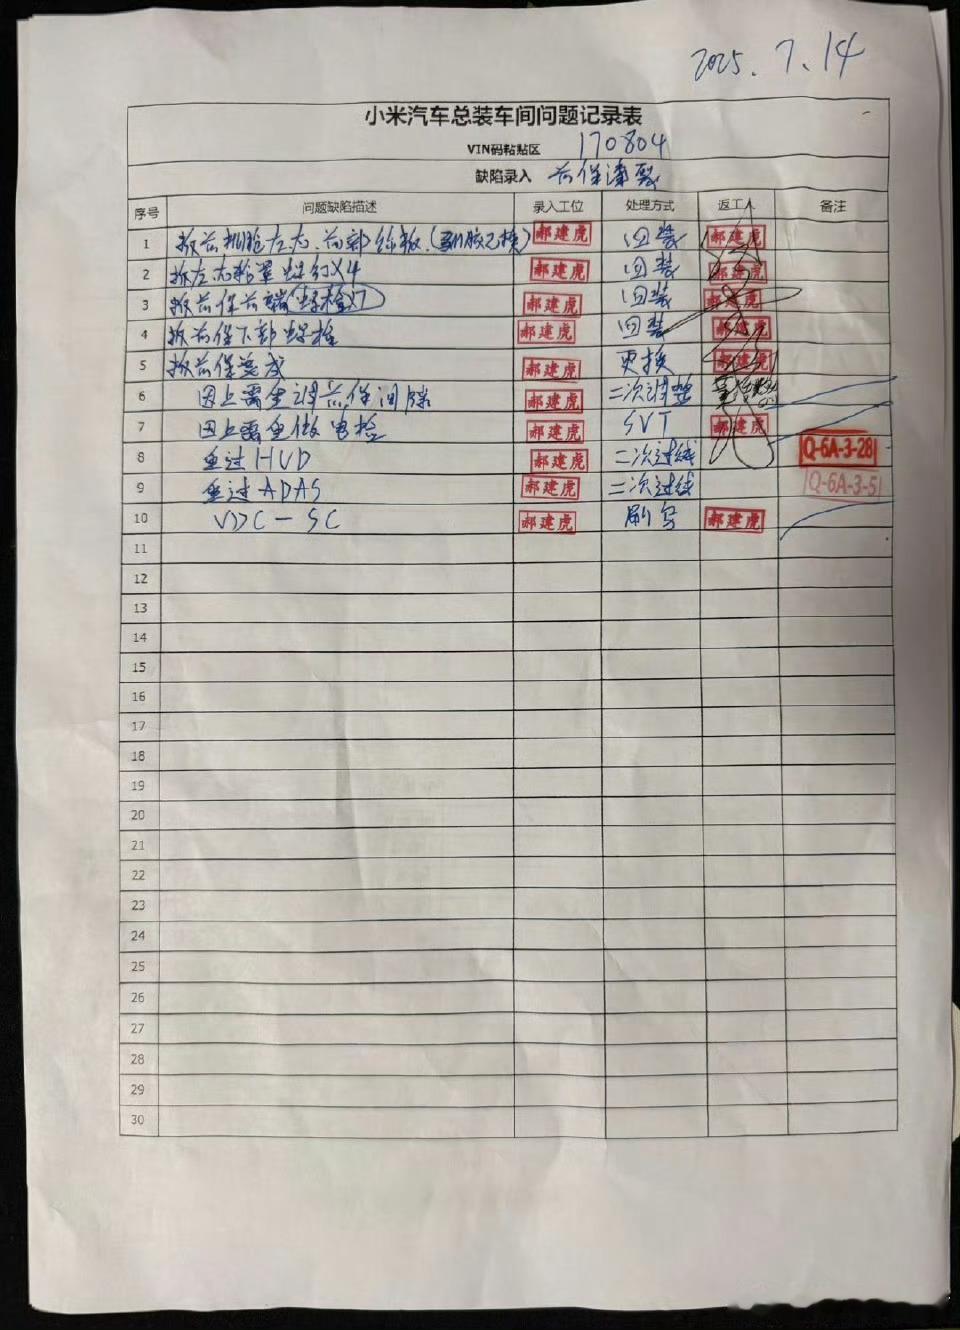 2025.7.14
小米汽车总装车间问题记录表
VIN码粘贴区 170804
缺陷录入 前保漆裂
序号 问题缺陷描述 录入工位 处理方式 返工人 备注
1 拆前机舱左右、前部饰板 郝建虎 回装 郝建虎
2 拆左右轮罩螺钉×4 郝建虎 回装 郝建虎
3 拆前保前端 郝建虎 回装 郝建虎
4 拆前保下部螺栓 郝建虎 回装 郝建虎
5 拆前保总成 郝建虎 更换 郝建虎
6 因上需重调前保间隙 郝建虎 二次调整
7 因上需重做电检 郝建虎 SVT 郝建虎
8 重过HUD 郝建虎 二次过线 Q-6A-3-28
9 重过ADAS 郝建虎 二次过线 Q-6A-3-5
10 VDC-SC 郝建虎 刷写 郝建虎
11
12
13
14
15
16
17
18
19
20
21
22
23
24
25
26
27
28
29
30